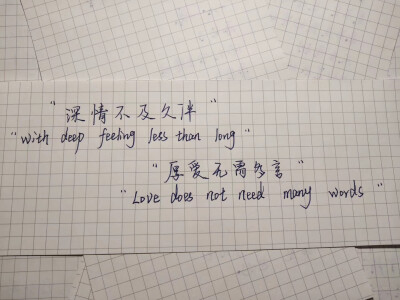 "深情不及久伴"
"with deep feeling less than long"
"厚爱无需多言"
"Love does not need many words"